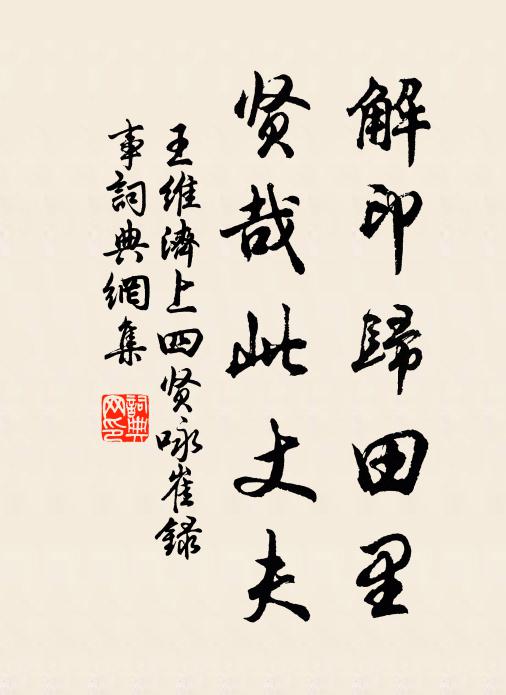 解印歸田里
贤哉此丈夫
王維濟上四贤咏崔録
事詞典網集
詞典网印